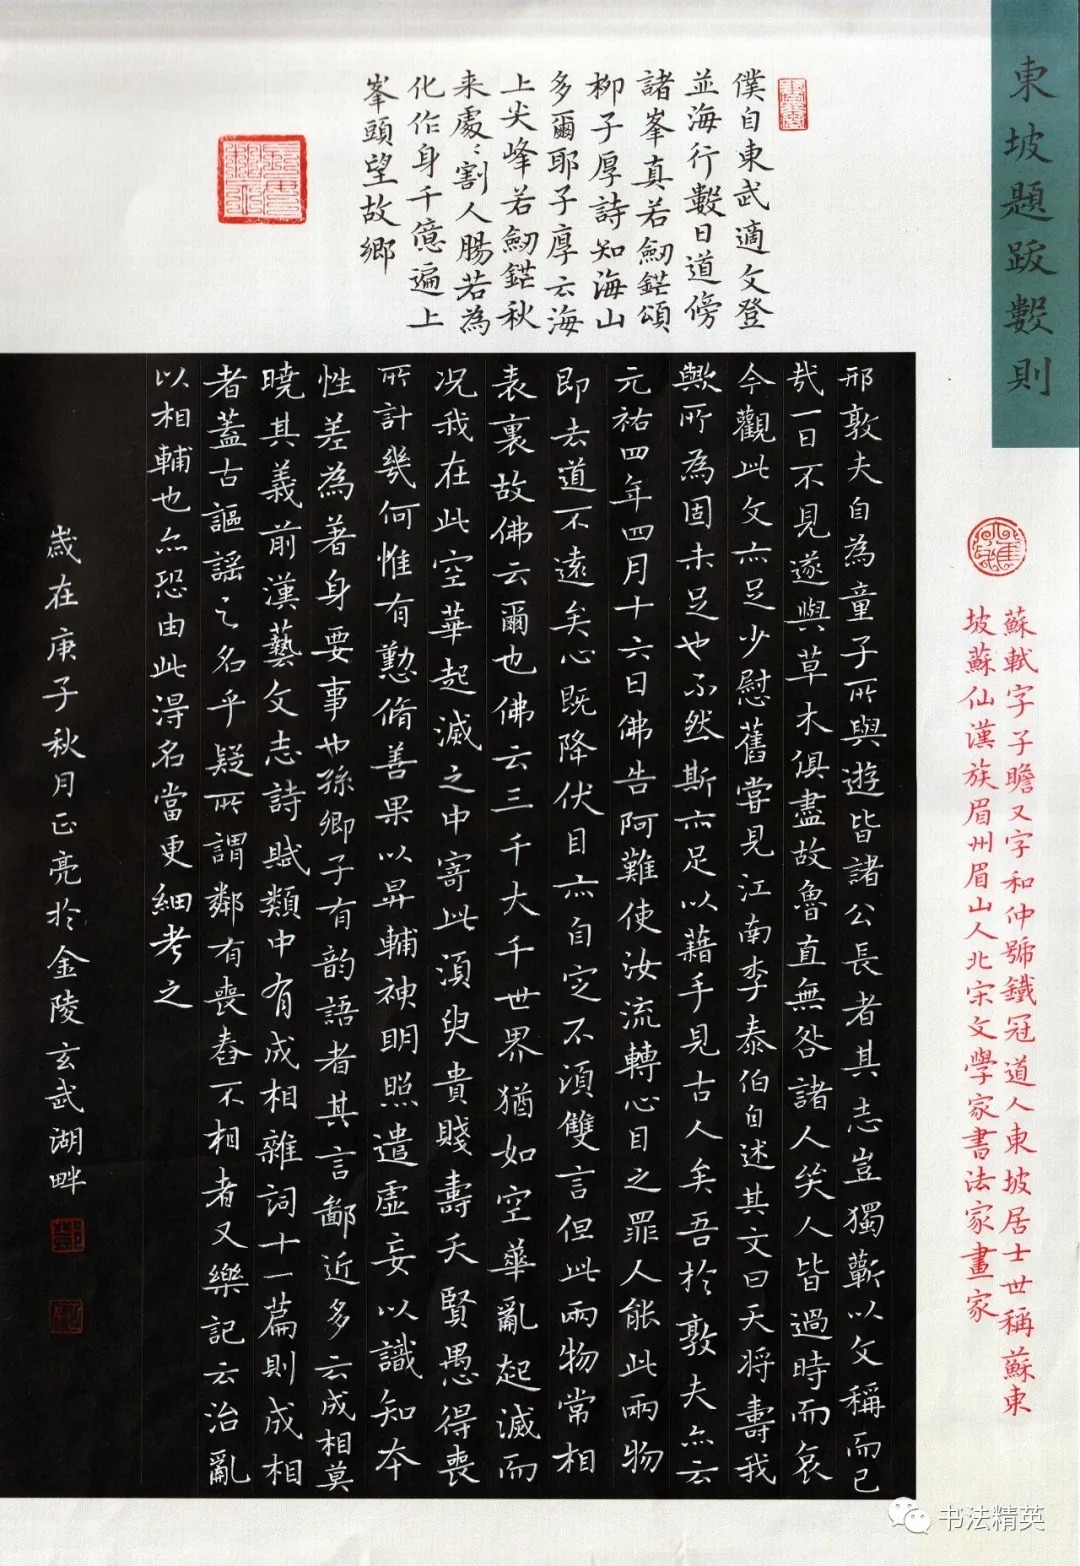 東坡題跋數則
蘇軾字子瞻又字和仲號鐵冠道人東坡居士世稱蘇東
坡蘇仙漢族眉州眉山人北宋文學家書法家畫家
僕自東武適文登
並海行數日道傍
諸峯真若劒鋩頌
柳子厚詩知海山
多爾耶子厚云海
上尖峰若劒鋩秋
来處〻割人腸若為
化作身千億遍上
峯頭望故鄉
邢敦夫自為童子所與遊皆諸公長者其志豈獨蘄以文稱而已
哉一日不見遂與草木俱盡故魯直無咎諸人哭人皆過時而哀
今觀此文亦足少慰舊嘗見江南李泰伯自述其文曰天將壽我
歟所為固未足也不然斯亦足以藉手見古人矣吾於敦夫亦云
元祐四年四月十六日佛告阿難使汝流轉心目之罪人能此兩物
即去道不遠矣心既降伏目亦自定不須雙言但此兩物常相
表裏故佛云爾也佛云三千大千世界猶如空華亂起滅而
况我在此空華起滅之中寄此須臾貴賤壽夭賢愚得喪
所計幾何惟有懃脩善果以昇輔神明照遣虛妄以識知本
性差為著身要事也孫卿子有韵語者其言鄙近多云成相莫
曉其義前漢藝文志詩賦類中有成相雜詞十一篇則成相
者蓋古謳謠之名乎疑所謂鄰有喪舂不相者又樂記云治亂
以相輔也亦恐由此得名當更細考之
歲在庚子秋月正亮於金陵玄武湖畔
书法精英